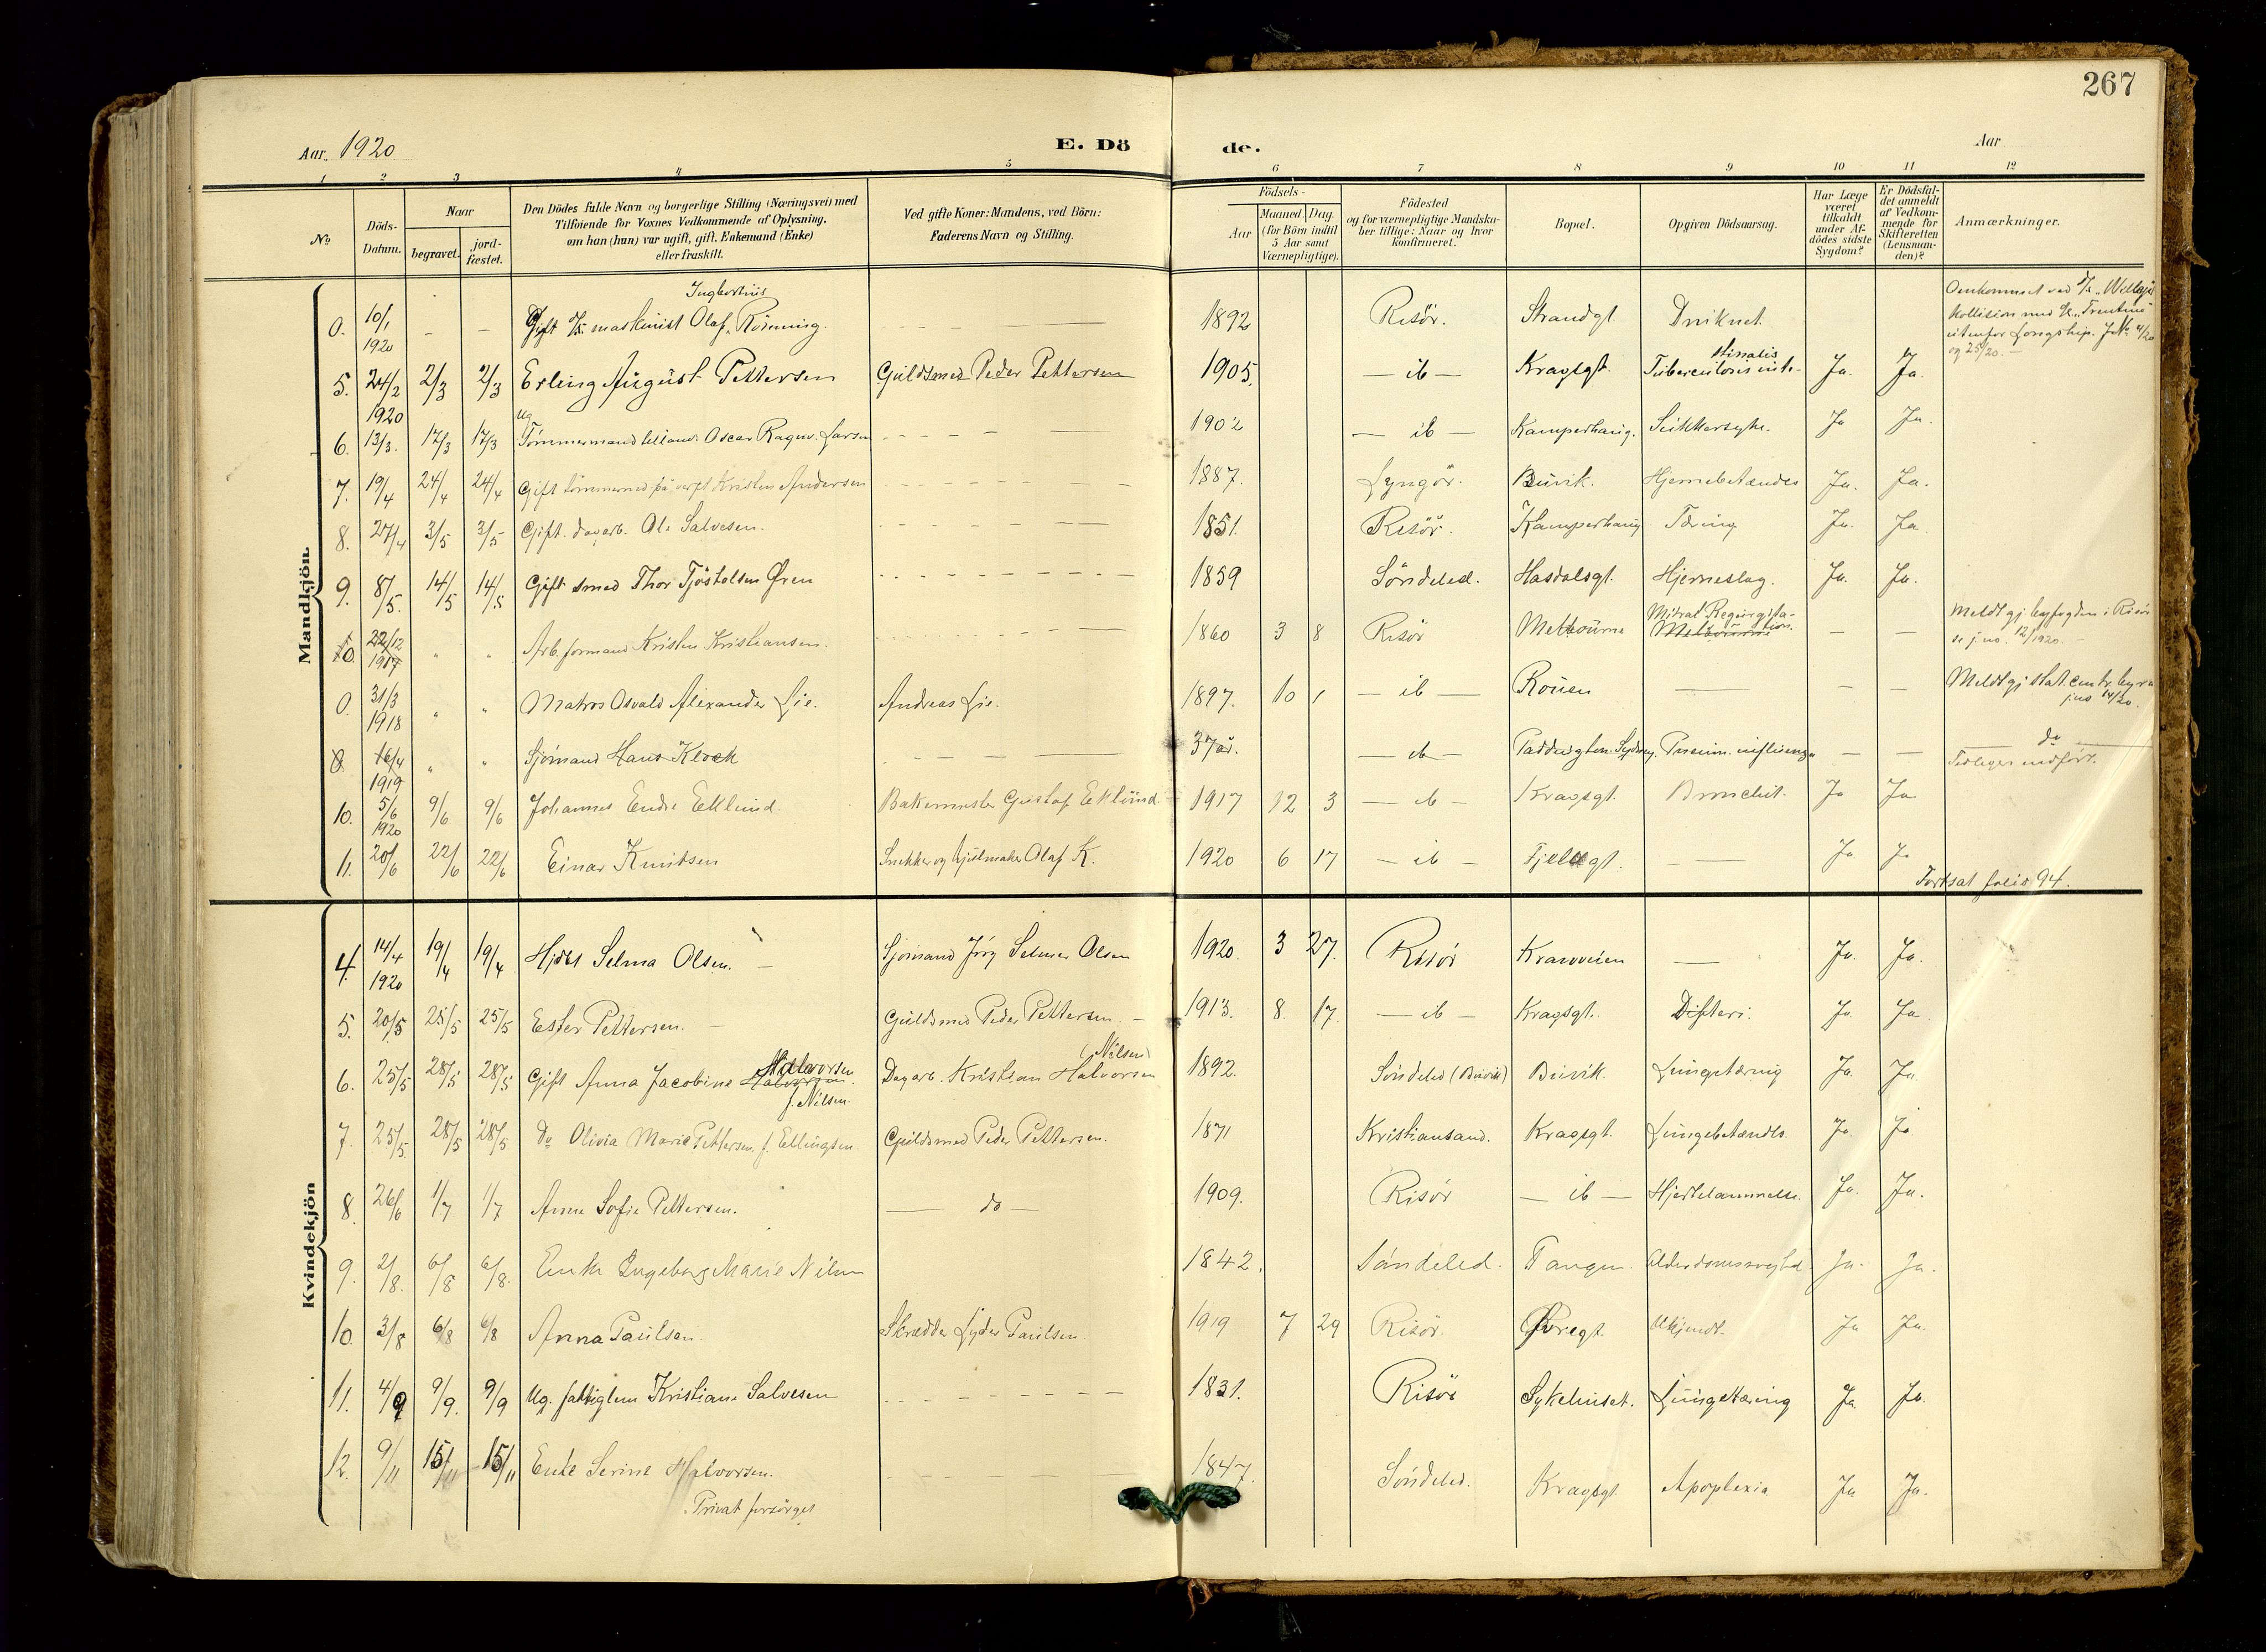 267
Aar. 1920
E. Dö
de.
Aar
1 2 3 4 5 6 7 8 9 10 11 12
No
Döds-
Datum.
Naar
begravet.
jord-
fæstet.
Den Dödes fulde Navn og borgerlige Stilling (Næringsvei) med
Tilföiende for Voxnes Vedkommende af Oplysning,
om han (hun) var ugift, gift, Enkemand (Enke)
eller fraskilt.
Ved gifte Koner: Mandens, ved Börn:
Faderens Navn og Stilling.
Födsels-
Aar
Maaned. Dag.
(for Börn indtil
5 Aar samt
Værnepligtige).
Födested
og for værnepligtige Mandska-
ber tillige: Naar og hvor
konfirmeret.
Bopæl.
Opgiven Dödsaarsag.
Har Læge
været
tilkaldt
under Af-
dödes sidste
Sygdom?
Er Dödsfal-
det anmeldt
af Vedkom-
mende for
Skifteretten
(Lensman-
den)?
Anmærkninger.
Mandkjön
0. 10/1 1920 – – Gift maskinist Olaf Ingbertius Rönning. 1892 Risör. Strandgt. Druknet. Omkommet ved
kollision med "Trentino"
utenfor Longships. J.No 4/20
og 25/20. –
5. 24/2 1920 2/3 2/3 Erling August Pettersen Guldsmed Peder Pettersen 1905. – ib – Kragsgt. Ja. Ja.
6. 13/3. 17/3 17/3 Ug. Tømmermand Oscar Ragnv. Larsen 1902 – ib – Kamperhaug. Sukkersyke. Ja Ja.
7. 19/4 24/4 24/4 Gift Kristen Andersen 1887. Lyngör. Buvik. Hjernebetændes Ja. Ja.
8. 27/4 3/5 3/5 Gift. dagarb. Ole Salvesen. 1851. Risör. Kamperhaug Tæring Ja. Ja
9. 8/5. 14/5 14/5 Gift smed Thor Tjöstolsen Øren 1859 Söndeled. Hasdalsgt. Hjerneslag. Ja. Ja.
10. 22/12 1917 " " Arb.formand Kristen Kristiansen. 1860 3 8 Risör Melbourne – – Meldt gj. byfogden i Risör
se j.no. 12/1920 –
0. 31/3 1918 " " Matros Osvald Alexander Lie. Andreas Lie. 1897. 10 1 – ib – Rouen – – – Meldt gj. stat. centr. byrå
j.no 14/20.
8. 16/4 1919 " " Sjömand Hans Klock 37 år. – ib – Paddington. Sydney. Pneum. influenza – – do
Tidligere indfört.
10. 5/6 1920 9/6 9/6 Johannes Endre Eklund Bakermester Gustaf Eklund 1917 12 3 – ib – Kragsgt. Bronchit. Ja Ja
11. 20/6 22/6 22/6 Einar Knutsen Snekker og hjulmaker Olaf K. 1920 6 17 – ib – Fjellgt. – Ja Ja
Fortsat folio 94.
Kvindekjön
4. 14/4 1920 19/4 19/4 Hjört Selma Olsen. – Sjömand Jörg Selmer Olsen 1920. 3 27. Risör Kranveien – Ja. Ja.
5. 20/5 25/5 25/5 Ester Pettersen. – Guldsmed Peder Pettersen. – 1913. 8. 17. – ib – Kragsgt. Difteri. Ja. Ja
6. 25/5 28/5 28/5 Gift Anna Jacobine Halvorsen f. Nilsen. Dagarb. Kristian Halvorsen (Nilsen) 1892. Söndeled (Buvik) Buvik. Lungetæring Ja. Ja
7. 25/5. 28/5 28/5 Do Olivia Marie Pettersen, f. Ellingsen Guldsmed Peder Pettersen. 1871 Kristiansand. Kragsgt. Lungebetændls. Ja. Ja
8. 26/6 1/7 1/7 Anne Sofie Pettersen. – do – 1909. Risör – ib – Hjertelammelse. Ja. Ja.
9. 2/8. 6/8 6/8. Enke Ingeborg Marie Nilsen 1842. Söndeled. Tangen. Alderdomssvaghed Ja. Ja.
10. 3/8 6/8 6/8 Anna Paulsen. Skrædder Lyder Paulsen. 1919 7 29 Risör. Øvregt. Ukjendt. Ja Ja.
11. 4/9 9/9. 9/9 Ug. fattiglem Kristiane Salvesen 1831. Risör Sykehuset. Lungetæring Ja. Ja.
12. 9/11 15/11 15/11 Enke Serine Halvorsen. 1847. Söndeled. Kragsgt. Apoplexia Ja Ja.
Privat forsörget